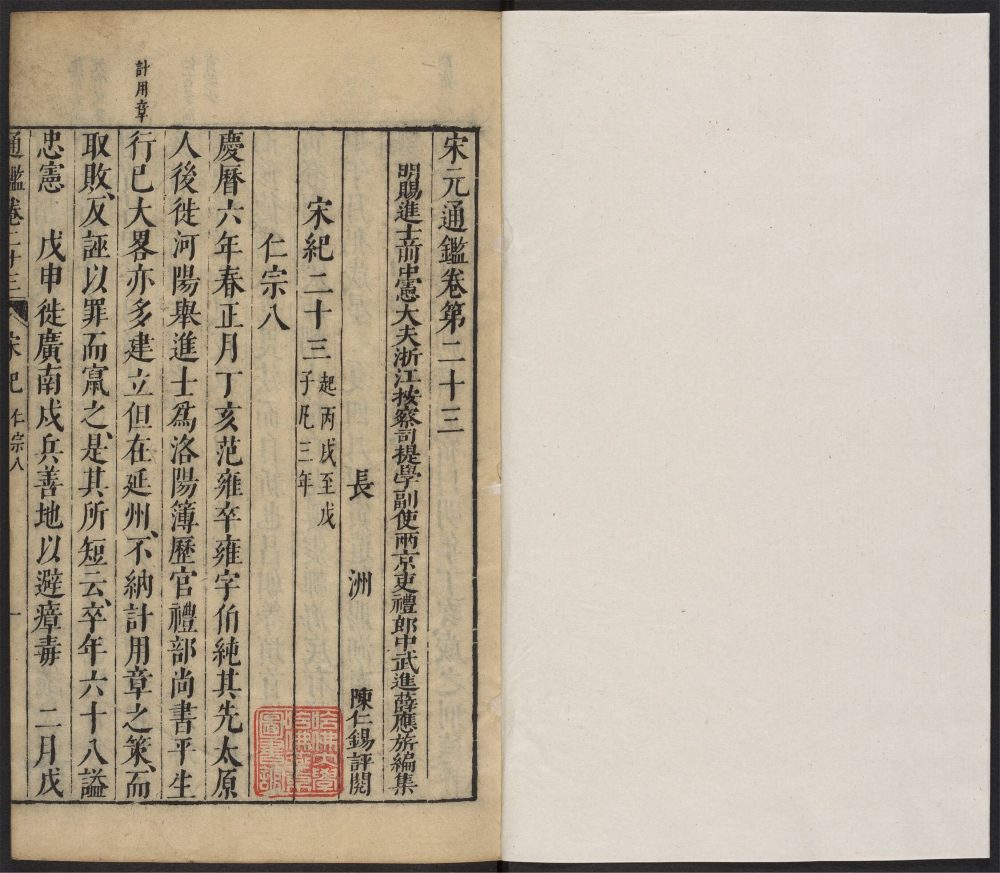 宋元通鑑卷第二十三
明賜進士前中憲大夫浙江按察司提學副使兩京吏禮郎中武進薛應旂編集
長洲 陳仁錫評閱
宋紀二十三 起丙戌至戊
子凡三年
仁宗八
慶曆六年春正月丁亥范雍卒雍字伯純其先太原
人後徙河陽舉進士爲洛陽簿歷官禮部尚書平生
計用章
行已大畧亦多建立但在延州、不納計用章之策、而
取敗、又誣以罪而竄之、是其所短云、卒年六十八謚
忠憲 戊申徙廣南戍兵善地以避瘴毒 二月戊
通鑑卷二十三 宋紀 仁宗八 一
哈佛大學
哈佛燕京
圖書館